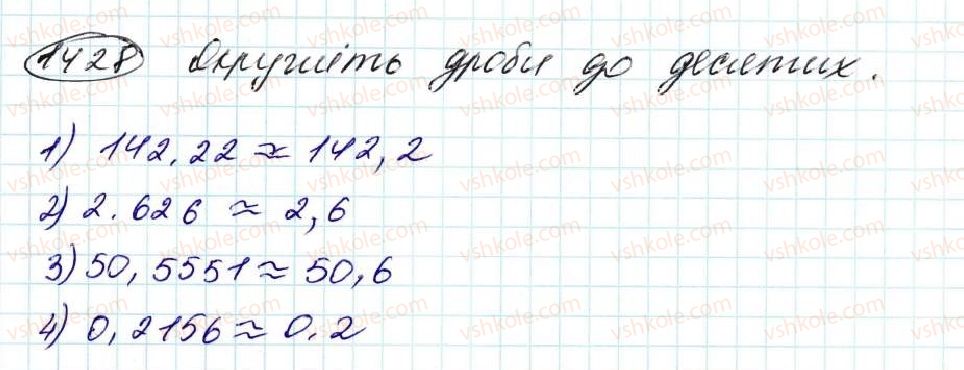 1428 Округліть дроби до десятих.
1) 142.22 ≈ 142,2
2) 2.626 ≈ 2,6
3) 50,5551 ≈ 50,6
4) 0,2156 ≈ 0.2
vshkole.com